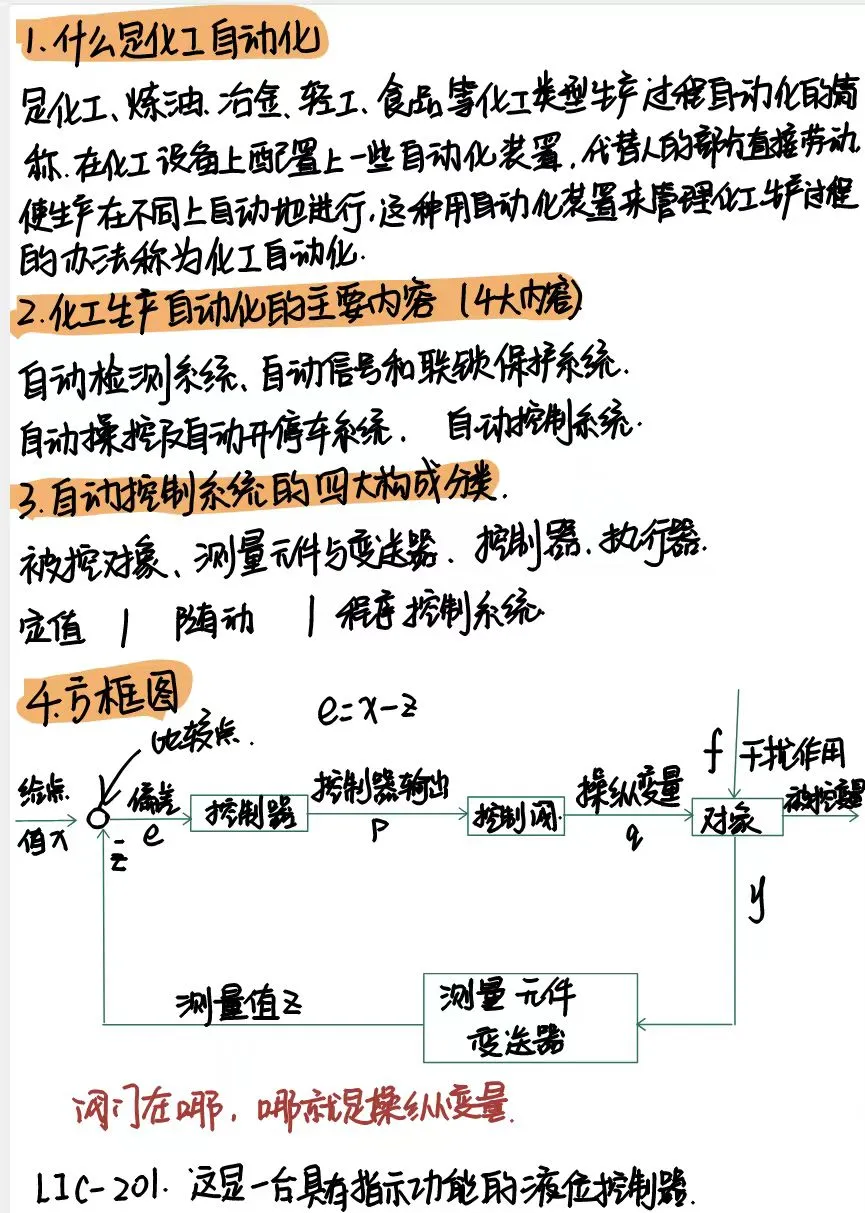 1.什么是化工自动化
是化工、炼油、冶金、轻工、食品等化工类型生产过程自动化的简
称.在化工设备上配置上一些自动化装置,代替人的部分直接劳动
使生产在不同上自动地进行,这种用自动化装置来管理化工生产过程
的办法称为化工自动化.
2.化工生产自动化的主要内容(4大内容)
自动检测系统、自动信号和联锁保护系统.
自动操控及自动开停车系统. 自动控制系统.
3.自动控制系统的四大构成分类.
被控对象、测量元件与变送器、控制器、执行器.
定值 | 随动 | 程序控制系统.
4.方框图
e=x-z
比较点.
f 干扰作用
给点
值x
偏差
e
控制器
控制器输出
p
控制阀.
操纵变量
q
对象
被控变量
z
y
测量值z
测量元件
变送器
阀门在哪,哪就是操纵变量.
LIC-201. 这是一台具有指示功能的液位控制器.